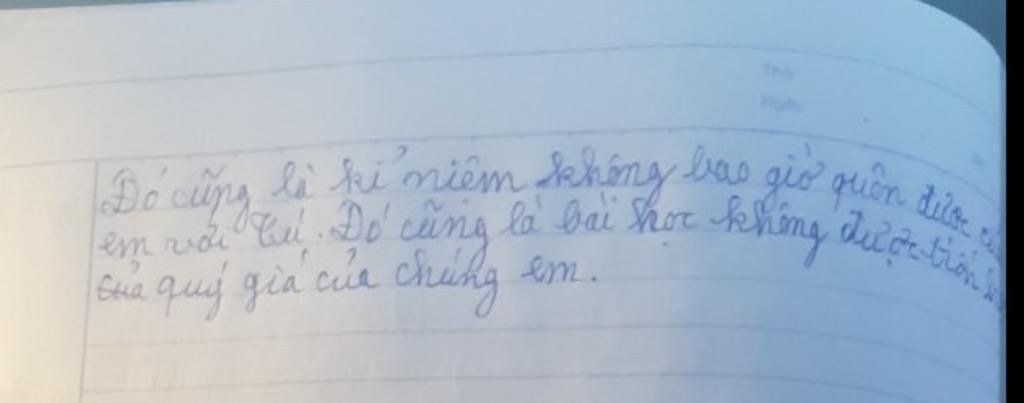 Thứ
Ngày
Đó cũng là kỉ niệm không bao giờ quên được của
em với Tú. Đó cũng là bài học không được trốn
quý giá của chúng em.